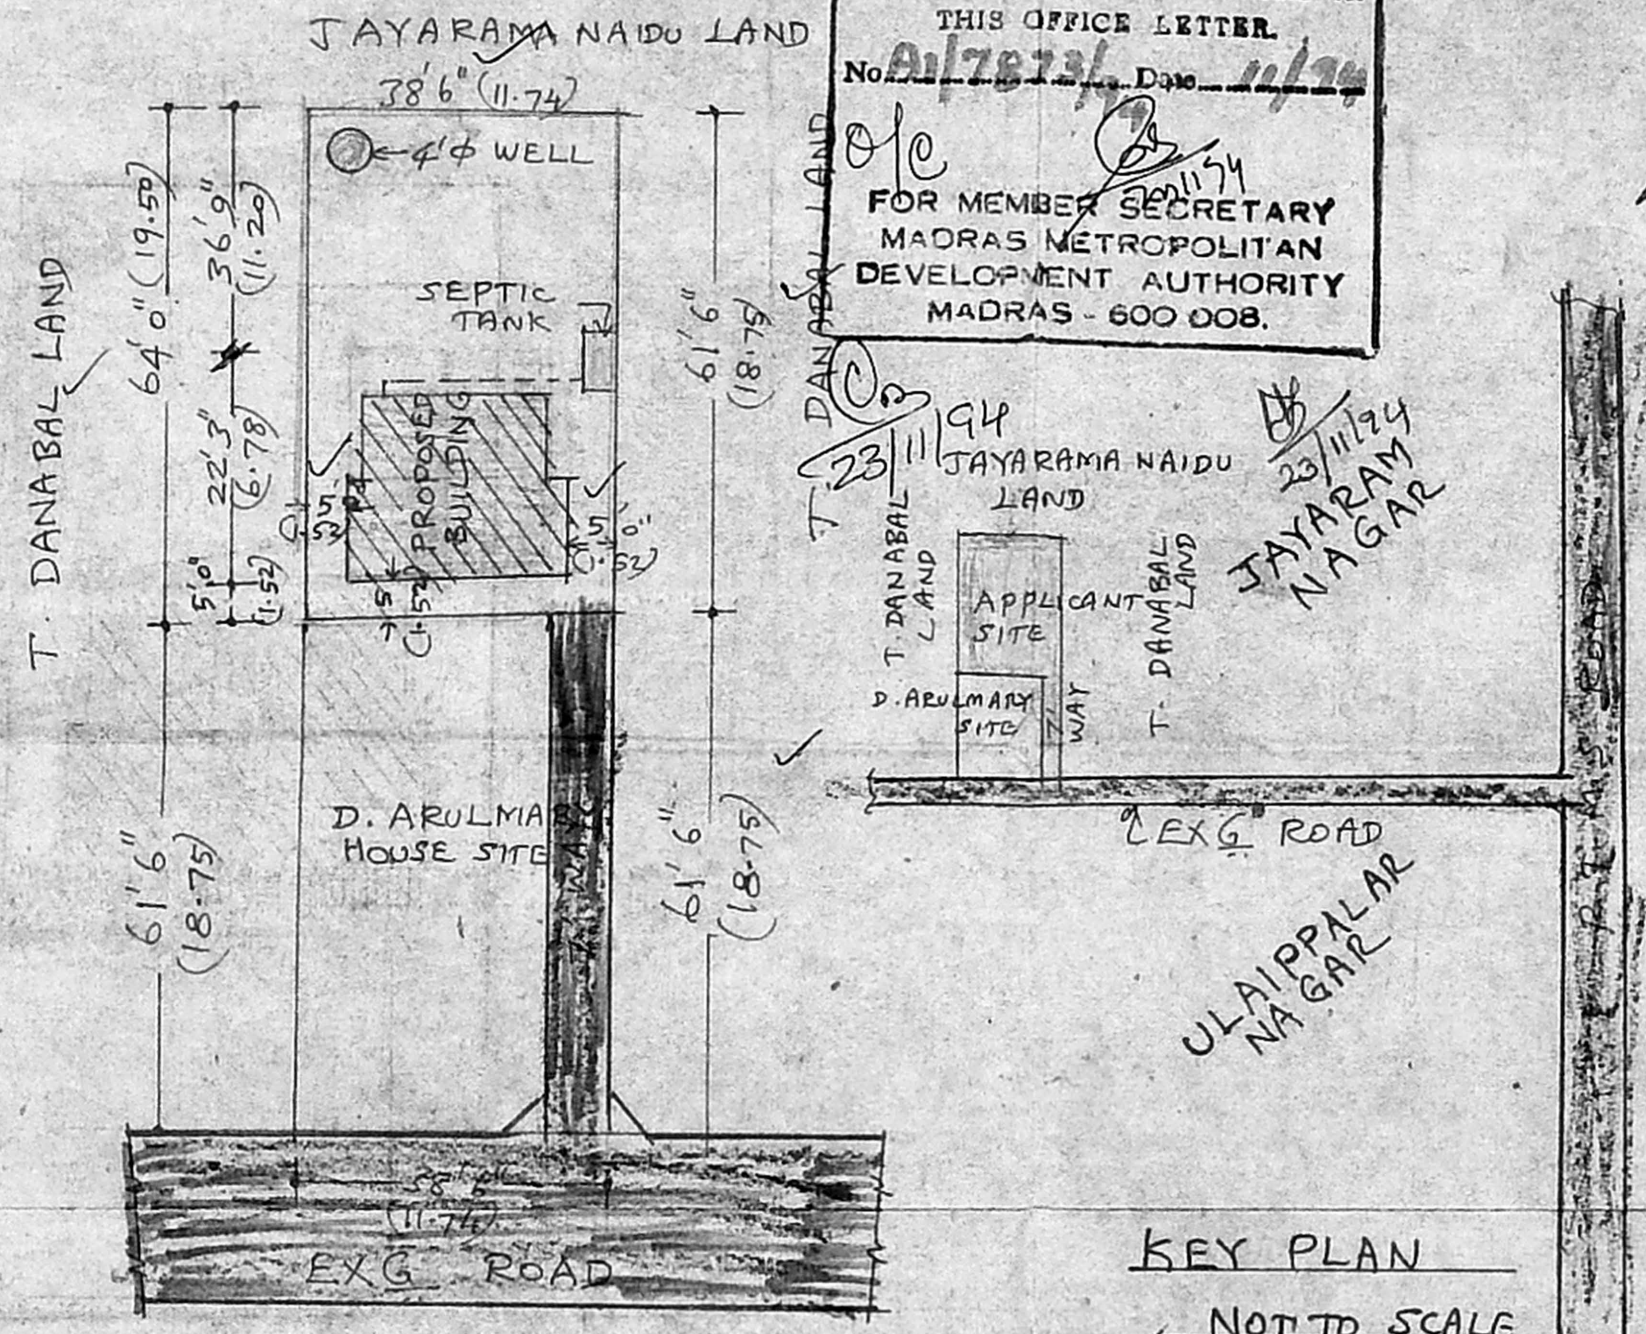 JAYARAMA NAIDU LAND
38'6" (11.74)
4'φ WELL
T. DANABAL LAND
64'0" (19.50)
36'9"
(11.20)
22'3"
(6.78)
5'0"
(1.52)
SEPTIC
TANK
PROPOSED
BUILDING
5'
(1.52)
5'0"
(1.52)
5'
(1.52)
61'6"
(18.75)
T. DANABAL LAND
61'6"
(18.75)
D. ARULMARY
HOUSE SITE
WAY
61'6"
(18.75)
38'6"
(11.74)
EXG ROAD
THIS OFFICE LETTER.
No. A1/7873/ Date 11/94
O/C
FOR MEMBER SECRETARY
MADRAS METROPOLITAN
DEVELOPMENT AUTHORITY
MADRAS - 600 008.
23/11/94
23/11/94
JAYARAMA NAIDU
LAND
T. DANABAL
LAND
APPLICANT
SITE
T. DANABAL
LAND
D. ARULMARY
SITE
WAY
JAYARAM
NAGAR
EXG ROAD
ULAIPPALAR
NAGAR
ROAD
KEY PLAN
NOT TO SCALE